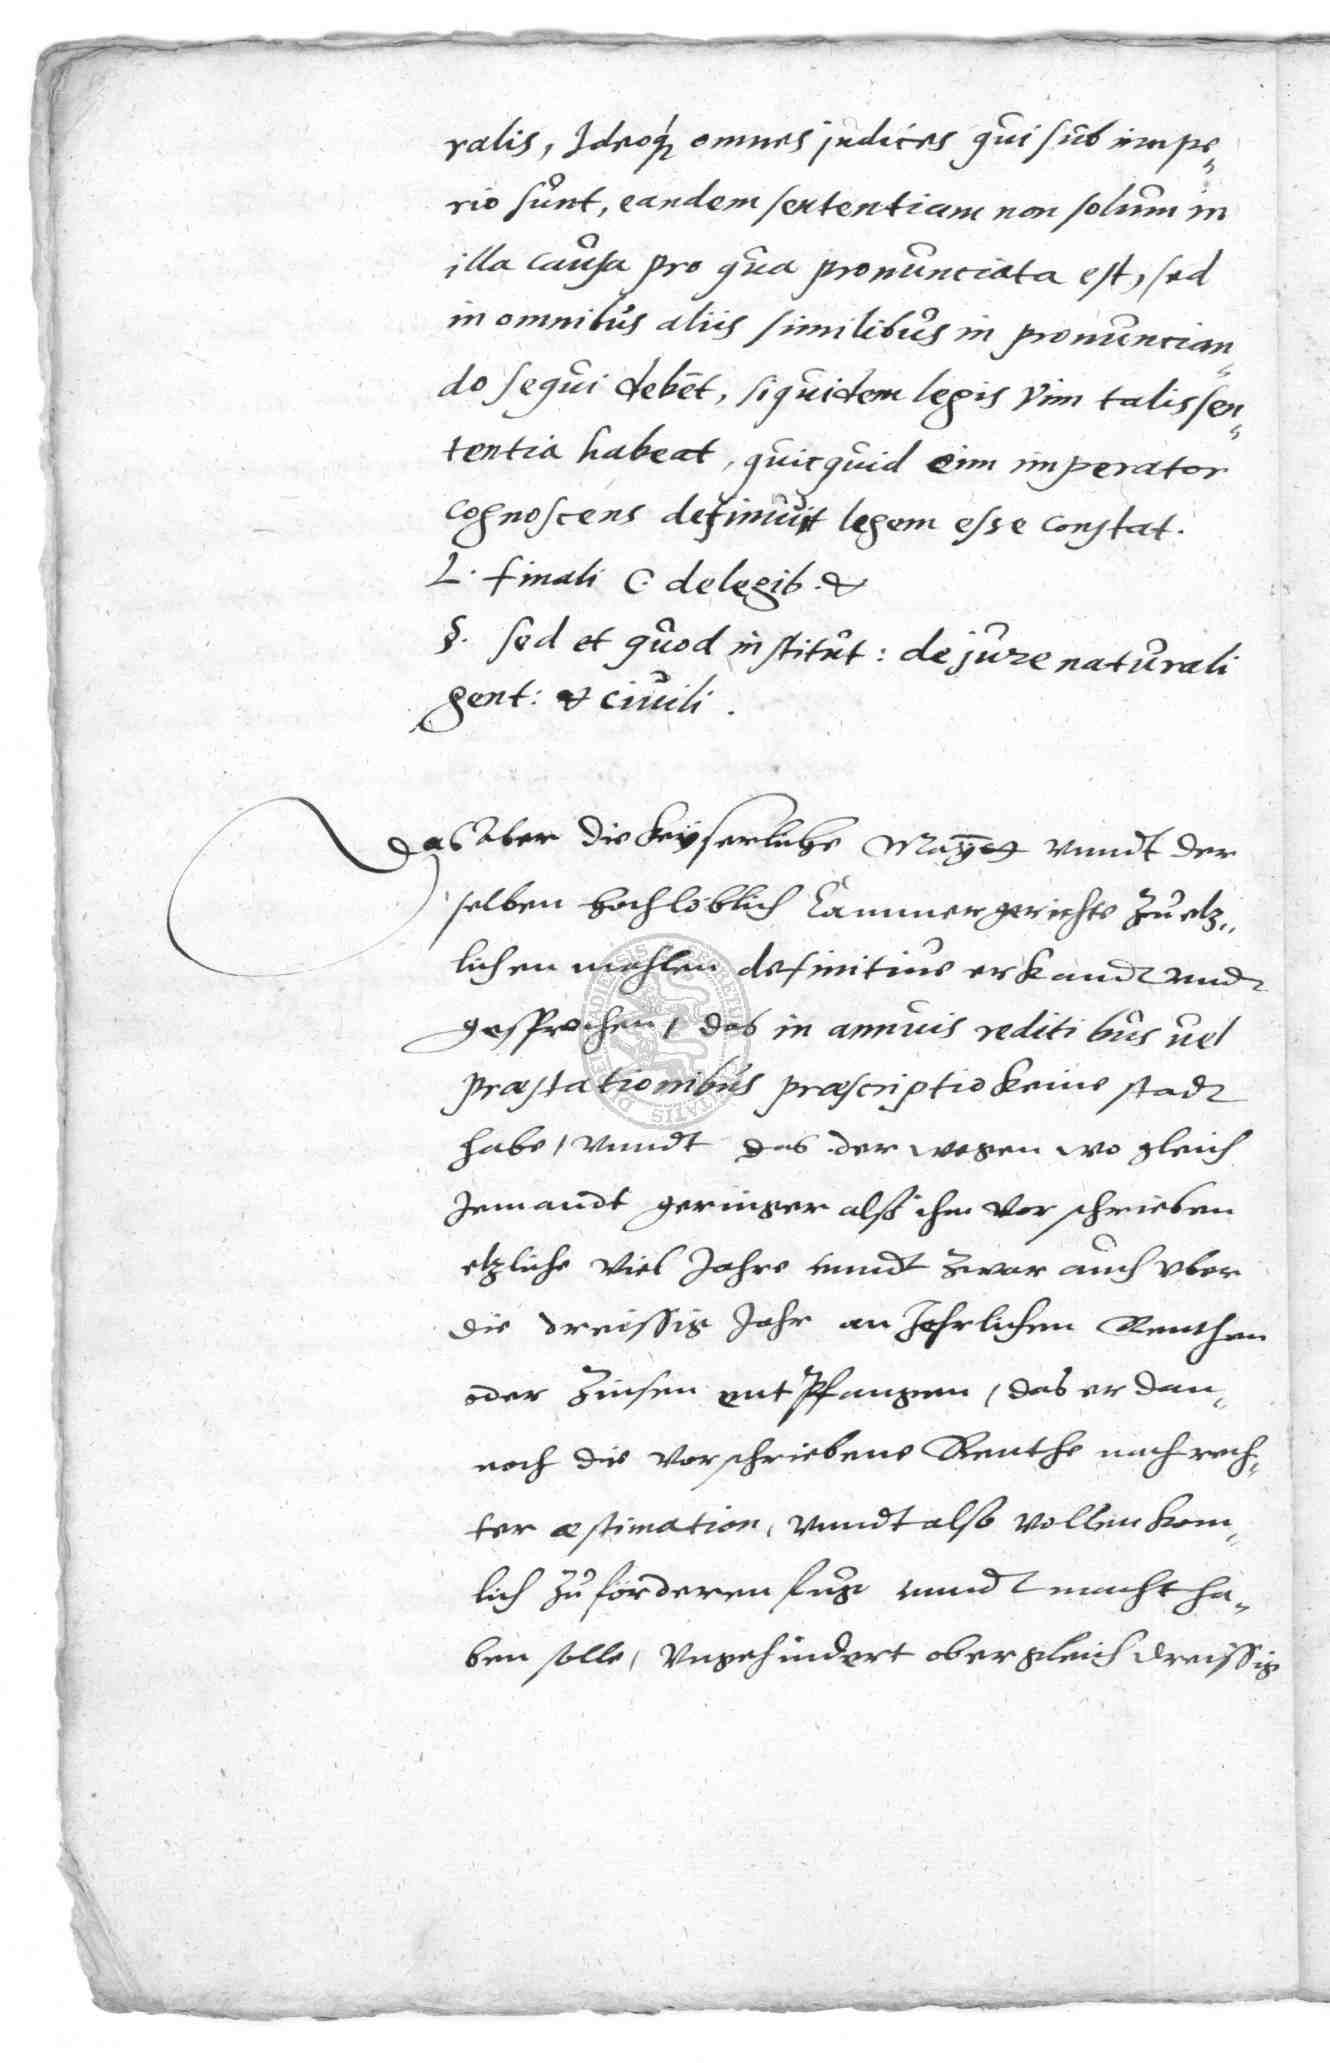 ralis, Ideoq́ omnes judices qui sub impe„
rio sunt, eandem sententiam non solum in
illa causa pro qua pronunciata est, sed
in omnibus aliis similibus in pronuncian„
do sequi debēt, siquidem legis vim talis sen„
tentia habeat, quicquid eim imperator
cognoscens definiuit legem esse constat.
L. finali C. de legib. &
§. sed et quod institut: de jure naturali
gent: & ciuili.
Das aber die keÿserliche Maÿ: vnndt der
selben hochlöblich Cammergerichts zu etz„
lichen mahlen definitiue erkandt vnd
gesprochen, das in annuis reditibus uel
præstationibus præscriptio keine stadt
habe, vnndt das derwegen wo gleich
Jemandt geringer alß ihm vorschrieben
etzliche viel Jahre vnndt zwar auch vber
die dreissig Jahr an Jehrlichen Renthen
oder Zinsen entpfangen, das er dan„
noch die vorschriebene Renthe nach rech„
ter æstimation, vnndt also vollenkom„
lich zu förderen fug vnndt macht ha„
ben solle, vngehindert ober gleich dreissig